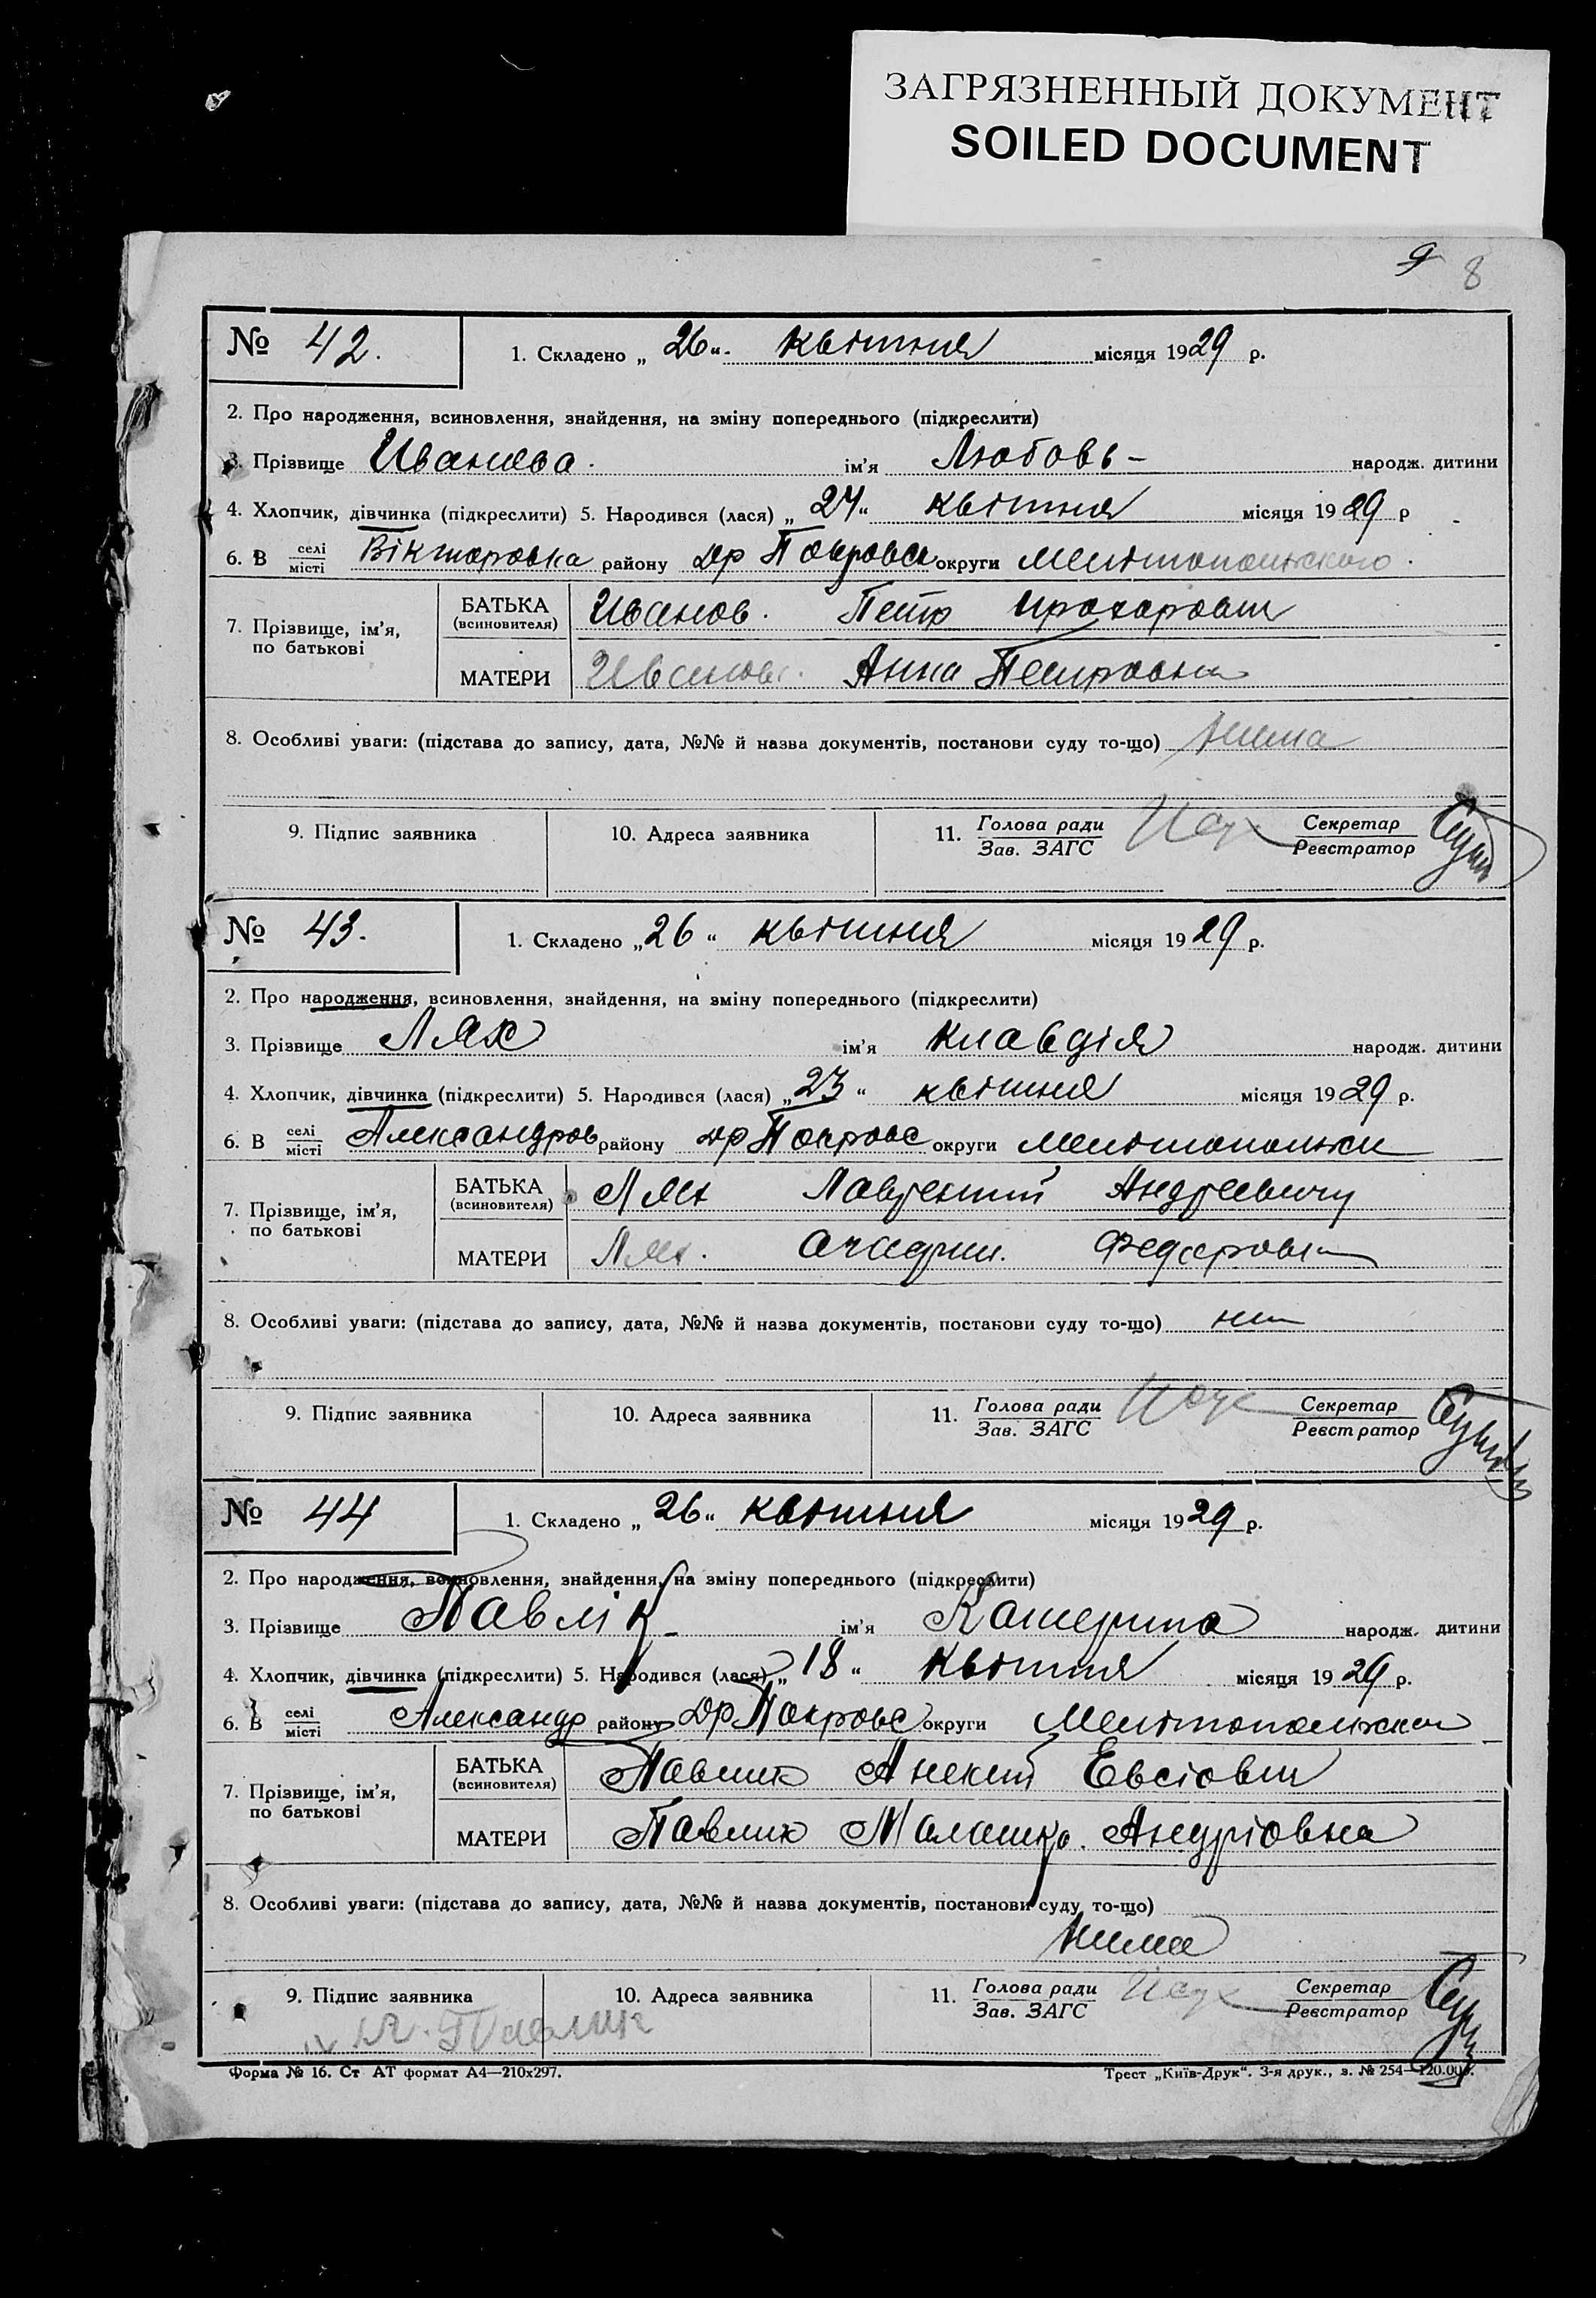 ЗАГРЯЗНЕННЫЙ ДОКУМЕНТ
SOILED DOCUMENT
9 8
№ 42. 1. Складено „ 26 “ квітня місяця 1929 р.
2. Про народження, всиновлення, знайдення, на зміну попереднього (підкреслити)
3. Прізвище Иванова. ім'я Любовь - народж. дитини
4. Хлопчик, дівчинка (підкреслити) 5. Народився (лася) „ 24 “ квітня місяця 1929 р
6. В селі/місті Вікторовка району Др Покровск округи Мелітопольского.
7. Прізвище, ім'я, по батькові БАТЬКА (всиновителя) Иванов. Петр Прохорович
МАТЕРИ Иванова. Анна Петровна
8. Особливі уваги: (підстава до запису, дата, №№ й назва документів, постанови суду то-що) Нима
9. Підпис заявника 10. Адреса заявника 11. Голова ради/Зав. ЗАГС Секретар/Реєстратор
№ 43. 1. Складено „ 26 “ квітня місяця 1929 р.
2. Про народження, всиновлення, знайдення, на зміну попереднього (підкреслити)
3. Прізвище Лях ім'я Клавдія народж. дитини
4. Хлопчик, дівчинка (підкреслити) 5. Народився (лася) „ 23 “ квітня місяця 1929 р.
6. В селі/місті Александров району Др Покровс округи Мелітопольски
7. Прізвище, ім'я, по батькові БАТЬКА (всиновителя) Лях Лаврентий Андреевичу
МАТЕРИ Лях. Федоровн
8. Особливі уваги: (підстава до запису, дата, №№ й назва документів, постанови суду то-що)
9. Підпис заявника 10. Адреса заявника 11. Голова ради/Зав. ЗАГС Секретар/Реєстратор
№ 44 1. Складено „ 26 “ квітня місяця 1929 р.
2. Про народження, всиновлення, знайдення, на зміну попереднього (підкреслити)
3. Прізвище Павлік - ім'я Катерина народж. дитини
4. Хлопчик, дівчинка (підкреслити) 5. Народився (лася) „ 18 “ квітня місяця 1929 р.
6. В селі/місті Александр району Др Покровс округи Мелітопольски
7. Прізвище, ім'я, по батькові БАТЬКА (всиновителя) Павлик Алекий Евсіович
МАТЕРИ Павлик Малашка. Андріовна
8. Особливі уваги: (підстава до запису, дата, №№ й назва документів, постанови суду то-що)
Нима
9. Підпис заявника 10. Адреса заявника 11. Голова ради/Зав. ЗАГС Секретар/Реєстратор
Павлик
Форма № 16. Ст АТ формат А4—210х297. Трест „Київ-Друк“. 3-я друк., з. № 254—120.000.